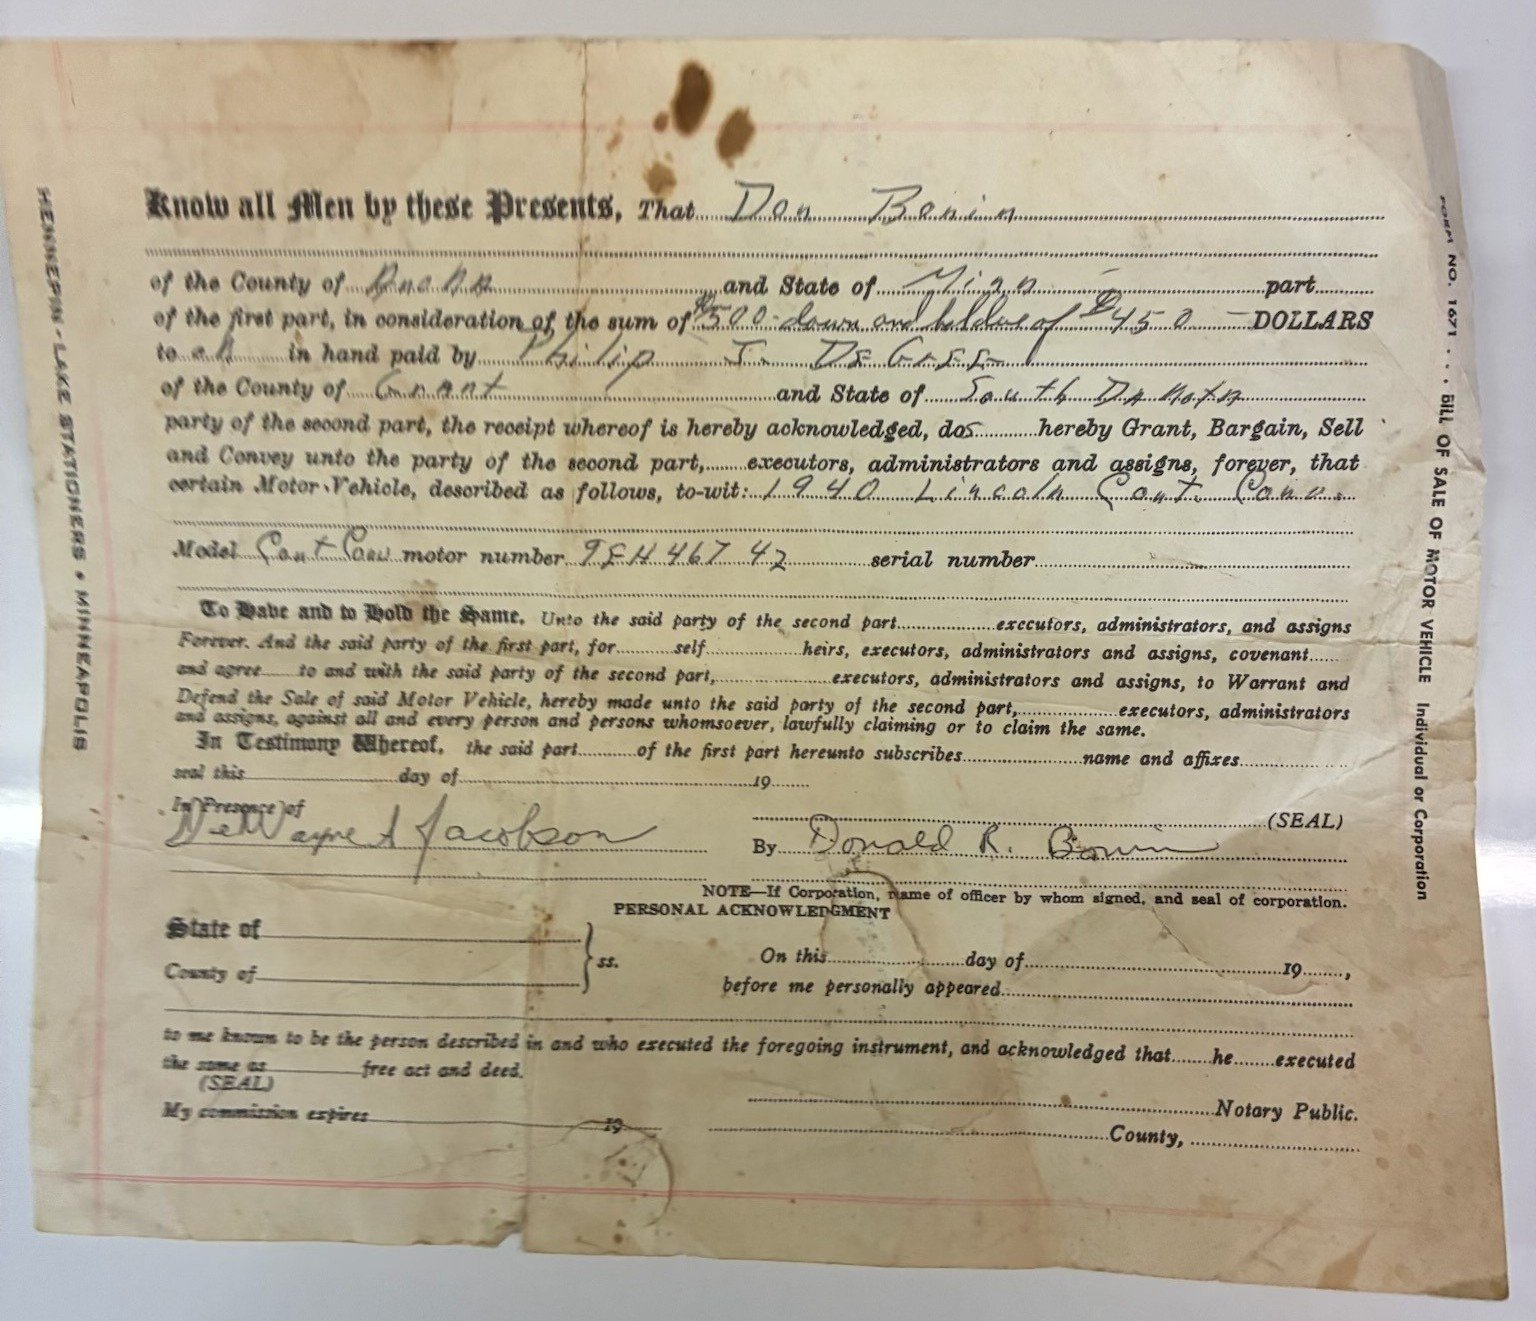 Know all Men by these Presents, That Don Bonin
of the County of Anoka and State of Minn part
of the first part, in consideration of the sum of $500 down and balance of $450 — DOLLARS
to in hand paid by Philip J. DeGree
of the County of Grant and State of South Dakota
party of the second part, the receipt whereof is hereby acknowledged, dos hereby Grant, Bargain, Sell
and Convey unto the party of the second part, executors, administrators and assigns, forever, that
certain Motor Vehicle, described as follows, to-wit: 1940 Lincoln Cont. Conv.
Model Cont Conv motor number 9EH46742 serial number
To Have and to Hold the Same. Unto the said party of the second part executors, administrators, and assigns
Forever. And the said party of the first part, for self heirs, executors, administrators and assigns, covenant
and agree to and with the said party of the second part, executors, administrators and assigns, to Warrant and
Defend the Sale of said Motor Vehicle, hereby made unto the said party of the second part, executors, administrators
and assigns, against all and every person and persons whomsoever, lawfully claiming or to claim the same.
In Testimony Whereof, the said part of the first part hereunto subscribes name and affixes
seal this day of 19
In Presence of
(SEAL)
DeWayne A Jacobson
By Donald R. Bonin
NOTE—If Corporation, name of officer by whom signed, and seal of corporation.
PERSONAL ACKNOWLEDGMENT
State of
County of
ss.
On this day of 19 ,
before me personally appeared
to me known to be the person described in and who executed the foregoing instrument, and acknowledged that he executed
the same as free act and deed.
(SEAL)
My commission expires 19
Notary Public.
County,
HENNEPIN - LAKE STATIONERS • MINNEAPOLIS
FORM NO. 1671 . . . BILL OF SALE OF MOTOR VEHICLE Individual or Corporation